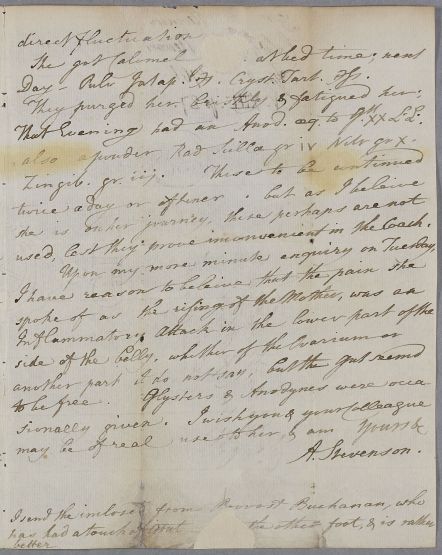 direct fluctuation
She got Calomel at bed time; next
Day - Pulv Jalap Cryst. Tart.
They purged her briskly & fatigued her;
That Evening had an Anod. æq. to Gtt XX L.L.
also a powder, Rad Scillæ gr iv Nitr gr X
Zingib. gr. iij. These to be continued
twice a day or oftener; but as I beleive
she is on her journey, these perhaps are not
used, lest they prove inconvenient in the Coach.
Upon my more minute enquiry on Tuesday,
I have reason to beleive that the pain she
spoke of as the rising of the Mother, was an
Inflammatory Attack in the lower part of the
side of the belly, whether of the Ovarium or
another part I do not say, but the Gut seemd
to be free. Glysters & Anodynes were occa
sionally given. I wish you & your Colleague
may be of real use to her, & am Yours &c
A. Stevenson.
I send the inclosed from Provost Buchanan, who
has had a touch of Gout the other foot, & is rather
better